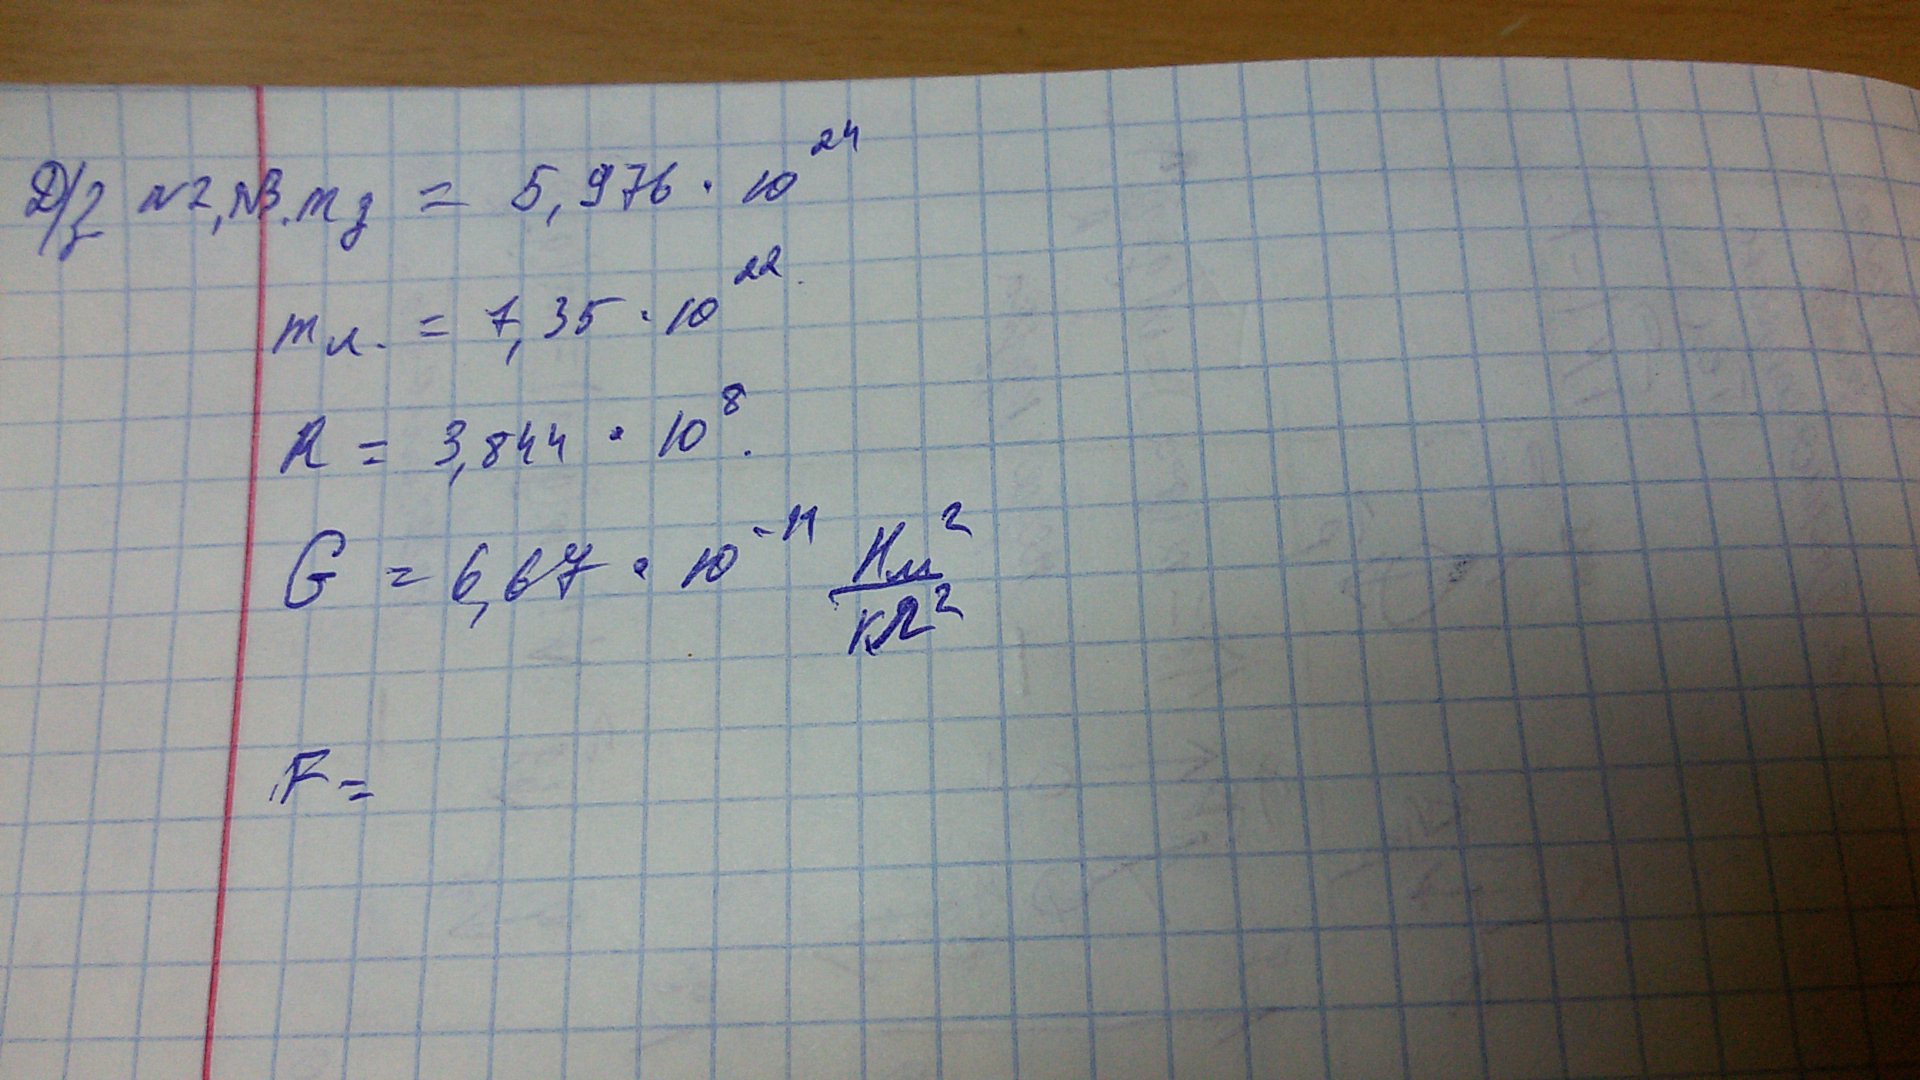 Д/з №2, №3. mз = 5,976 · 10²⁴
mл. = 7,35 · 10²².
R = 3,844 · 10⁸.
G = 6,67 · 10⁻¹¹ Нм²/кг²
F =